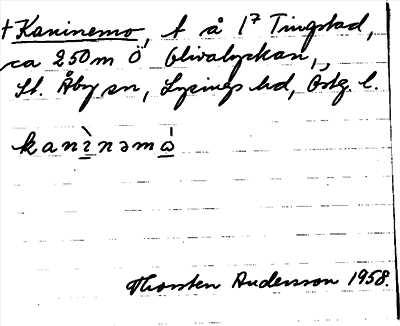 † Kaninemo, t å 1⁷ Tingstad,
ca 250 m Ö Olivalyckan,
St. Åby sn, Lysings hd, Östg. l.
kanìnəmω̇
Thorsten Andersson 1958.